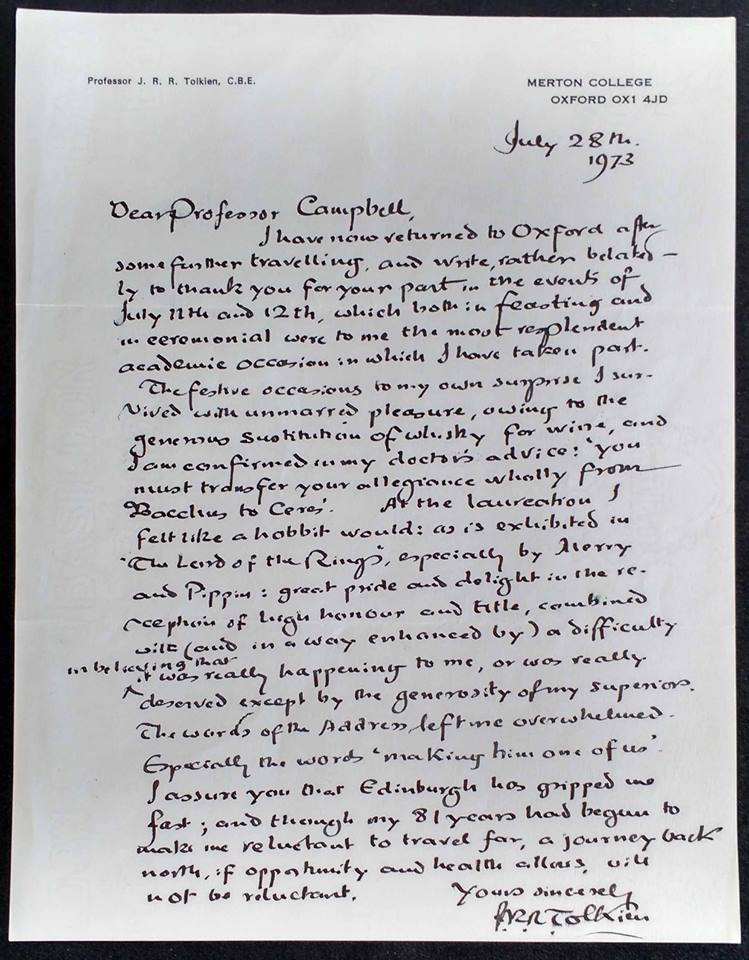 Professor J. R. R. Tolkien, C.B.E.
MERTON COLLEGE
OXFORD OX1 4JD
July 28th.
1973
Dear Professor Campbell,
I have now returned to Oxford after
some further travelling, and write, rather belated-
ly to thank you for your part in the events of
July 11th and 12th, which both in feasting and
in ceremonial were to me the most resplendent
academic occasion in which I have taken part.
The festive occasions to my own surprise I sur-
vived with unmarred pleasure, owing to the
generous sustitution of whisky for wine, and
I am confirmed in my doctor's advice: 'you
must transfer your allegiance wholly from
Bacchus to Ceres'. At the laureation I
felt like a hobbit would: as is exhibited in
"The Lord of the Rings", especially by Merry
and Pippin: great pride and delight in the re-
ception of high honour and title, combined
with (and in a way enhanced by) a difficulty
in believing that
it was really happening to me, or was really
deserved except by the generosity of my superiors.
The words of the Address, left me overwhelmed.
Especially the words 'making him one of us'.
I assure you that Edinburgh has gripped me
fast; and though my 81 years had begun to
make me reluctant to travel far, a journey back
north, if opportunity and health allows, will
not be reluctant.
Yours sincerely
J.R.R. Tolkien